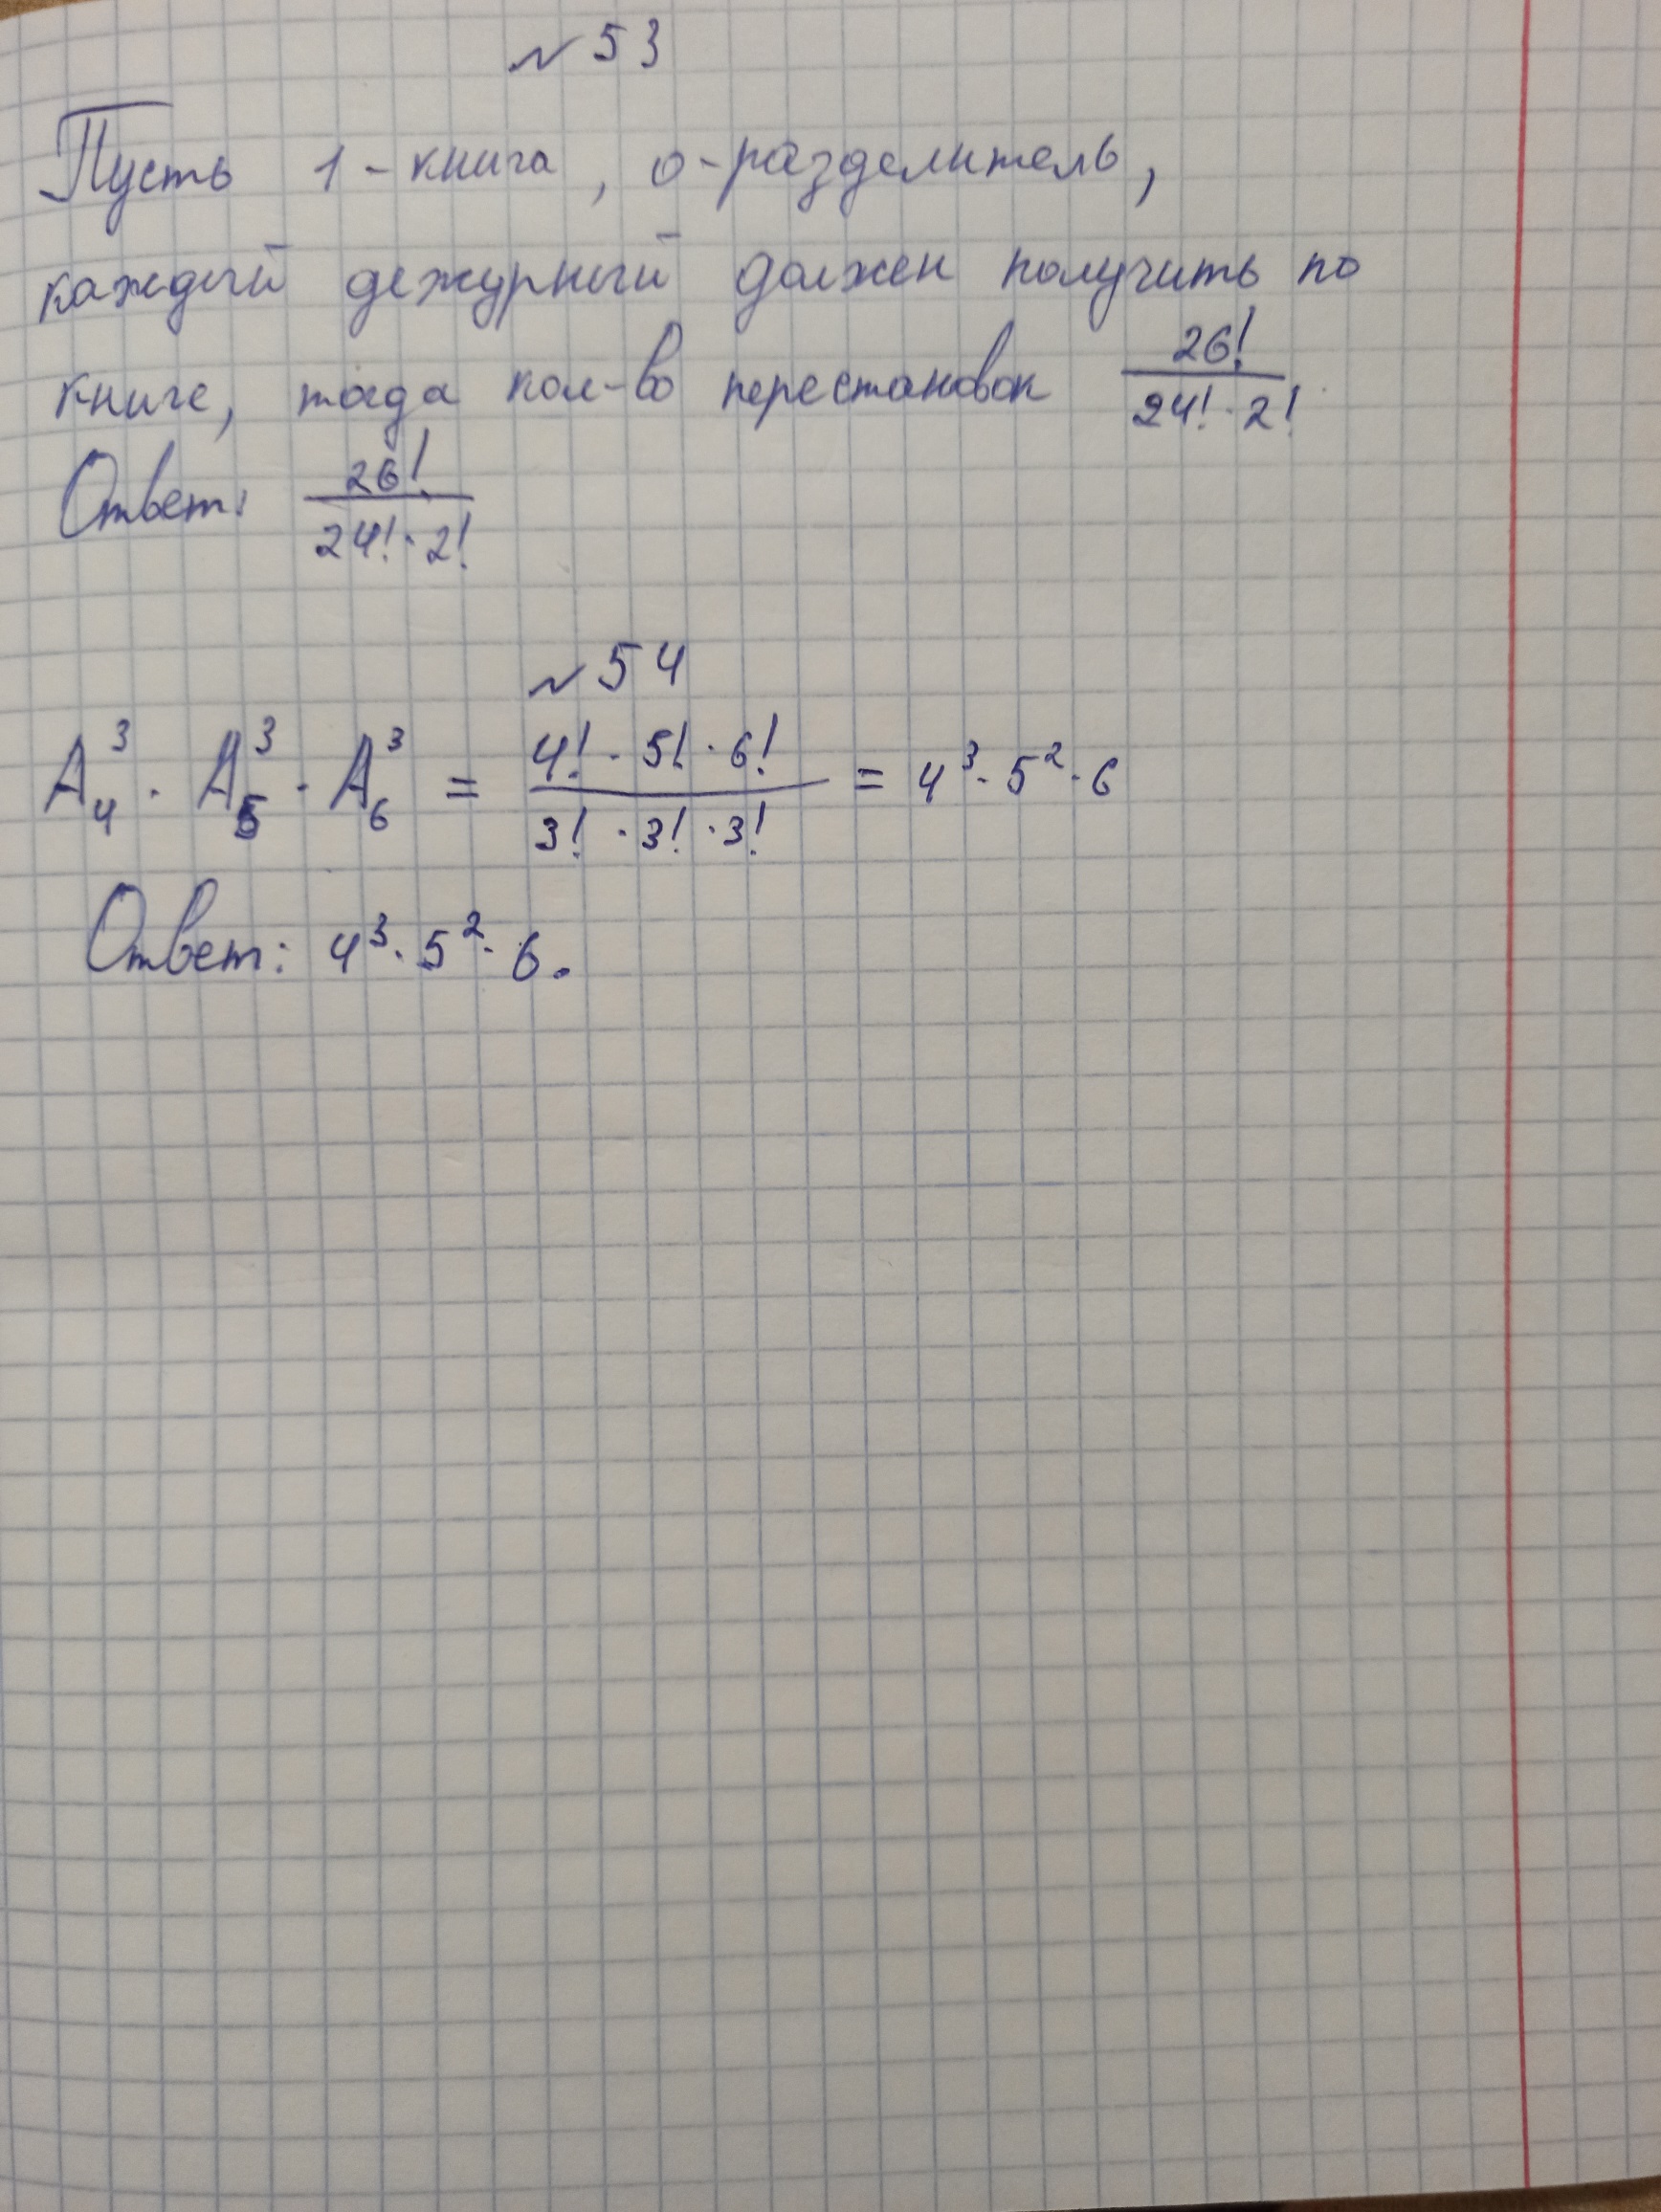 № 53
Пусть 1 - книга, 0 - разделитель,
каждый дежурный должен получить по
книге, тогда кол-во перестановок 26!/(24! · 2!)
Ответ: 26!/(24! · 2!)
№ 54
A₄³ · A₅³ · A₆³ = (4! · 5! · 6!)/(3! · 3! · 3!) = 4³ · 5² · 6
Ответ: 4³ · 5² · 6.